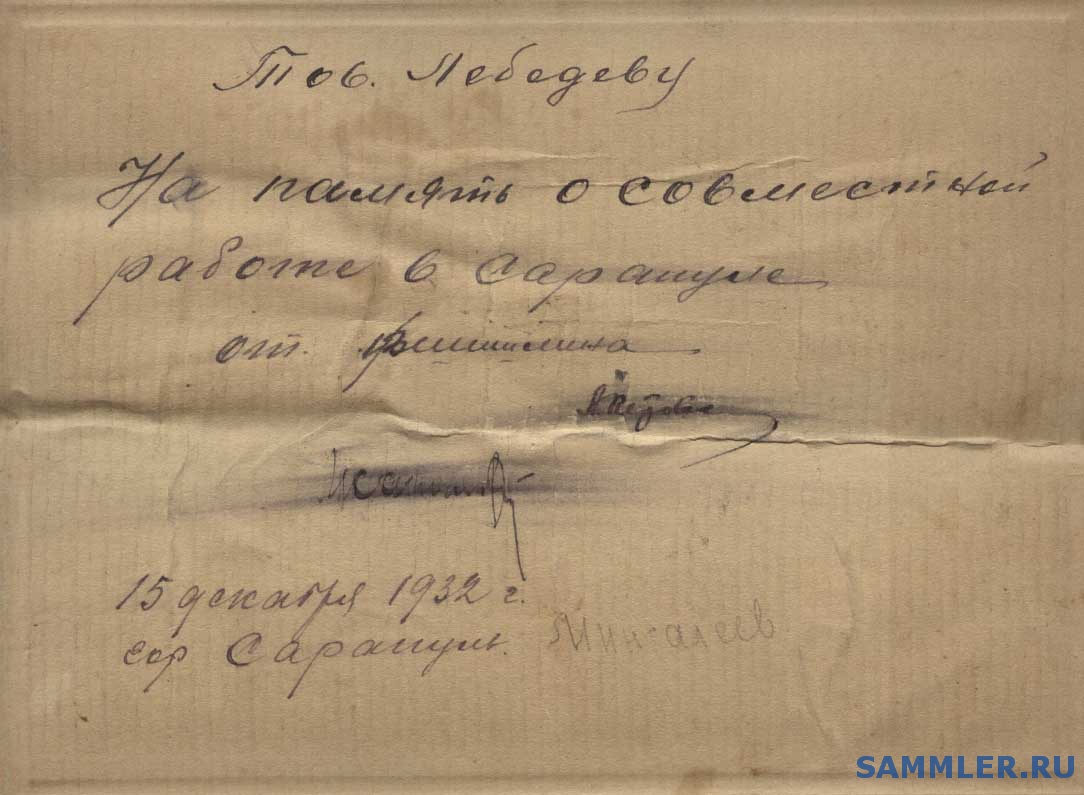 Тов. Лебедеву
На память о совместной
работе в Сарапуле
от
15 декабря 1932 г.
гор Сарапуль.
Мингалеев
SAMMLER.RU